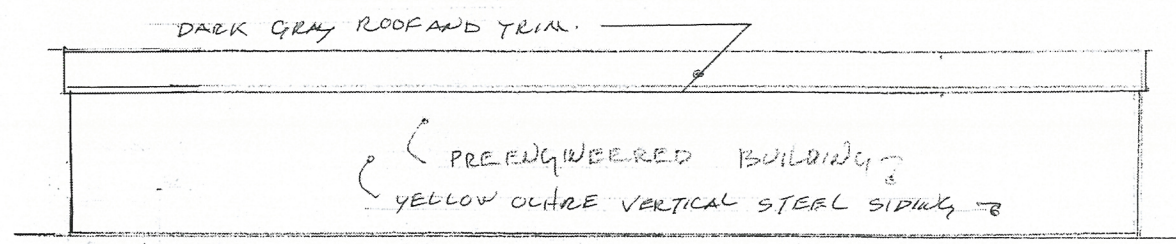 DARK GRAY ROOF AND TRIM.
PREENGINEERED BUILDING
YELLOW OCHRE VERTICAL STEEL SIDING